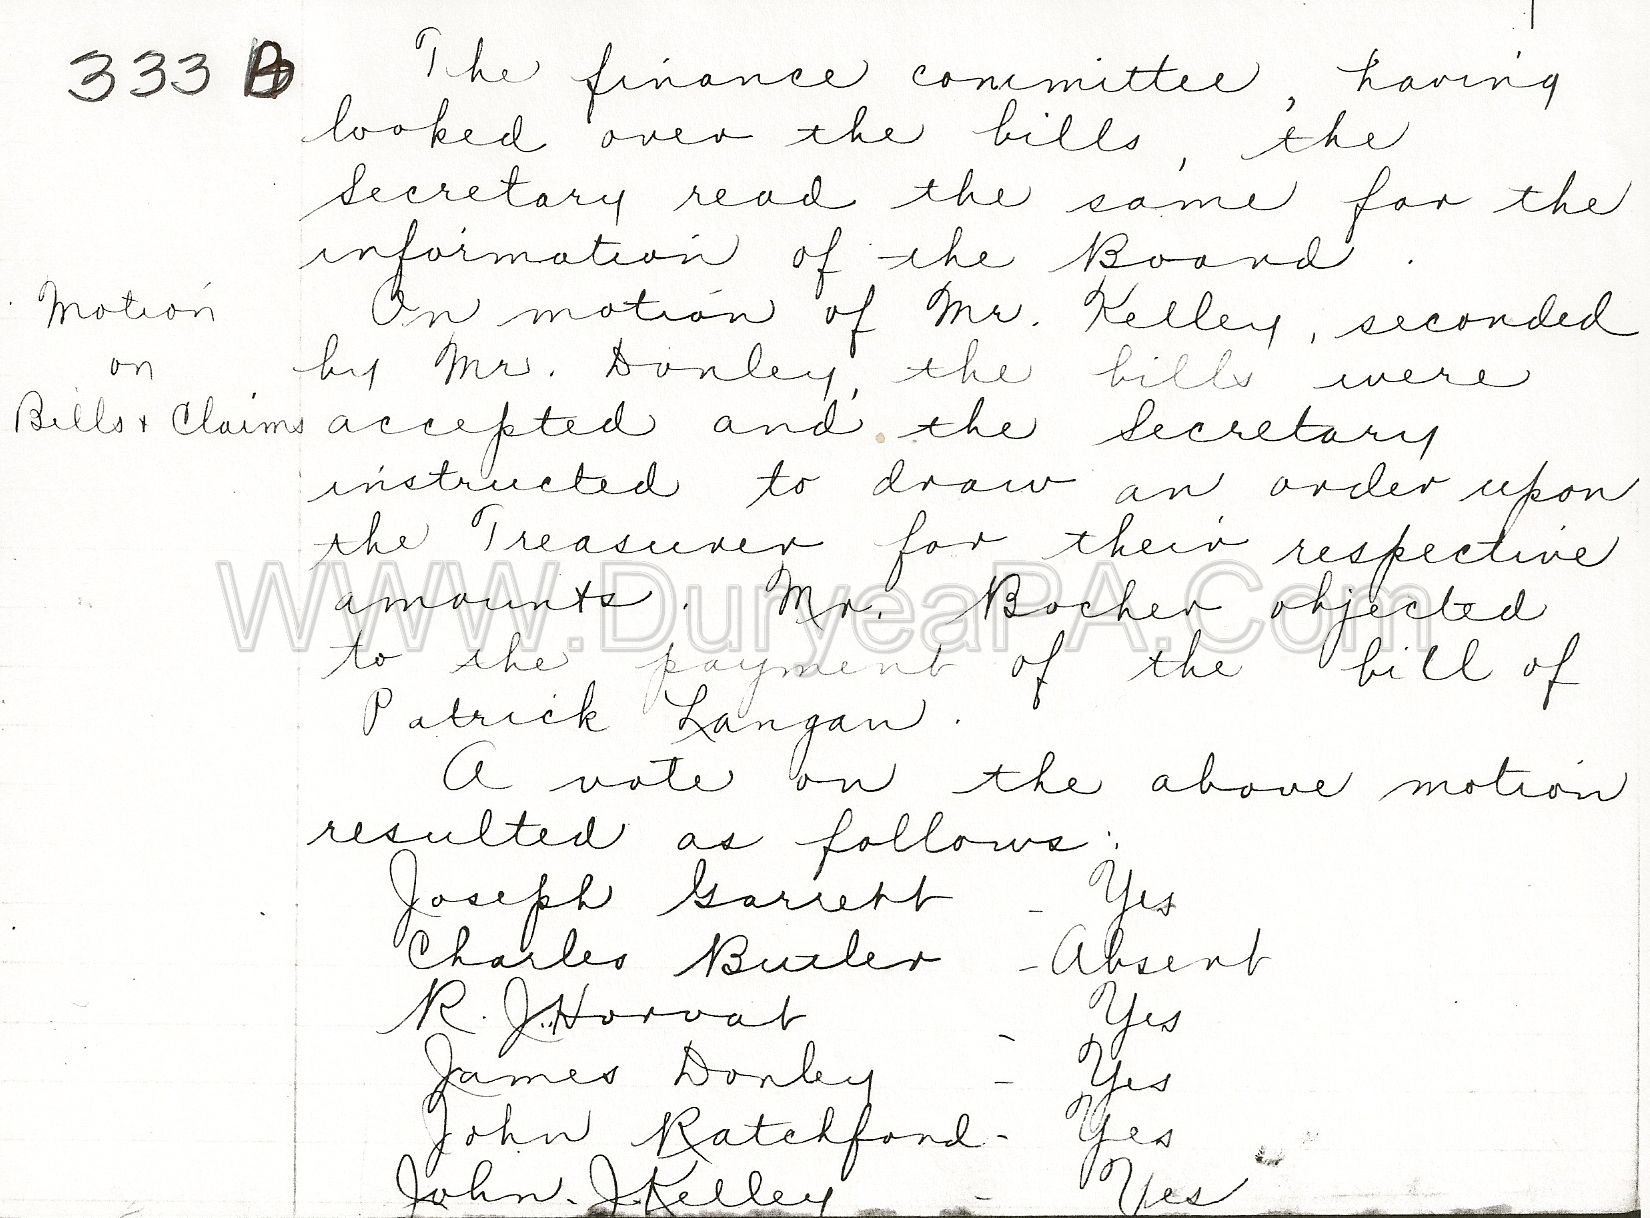 333 B
The finance committee, having
looked over the bills, the
Secretary read the same for the
information of the Board.
Motion
on
Bills & Claims
On motion of Mr. Kelley, seconded
by Mr. Donley, the bills were
accepted and the Secretary
instructed to draw an order upon
the Treasurer for their respective
amounts. Mr. Bocher objected
to the payment of the bill of
Patrick Langan.
A vote on the above motion
resulted as follows:
Joseph Garrett - Yes
Charles Butler - Absent
R. J. Horvat - Yes
James Donley - Yes
John Ratchford - Yes
John J. Kelley - Yes
WWW.DuryeaPA.Com